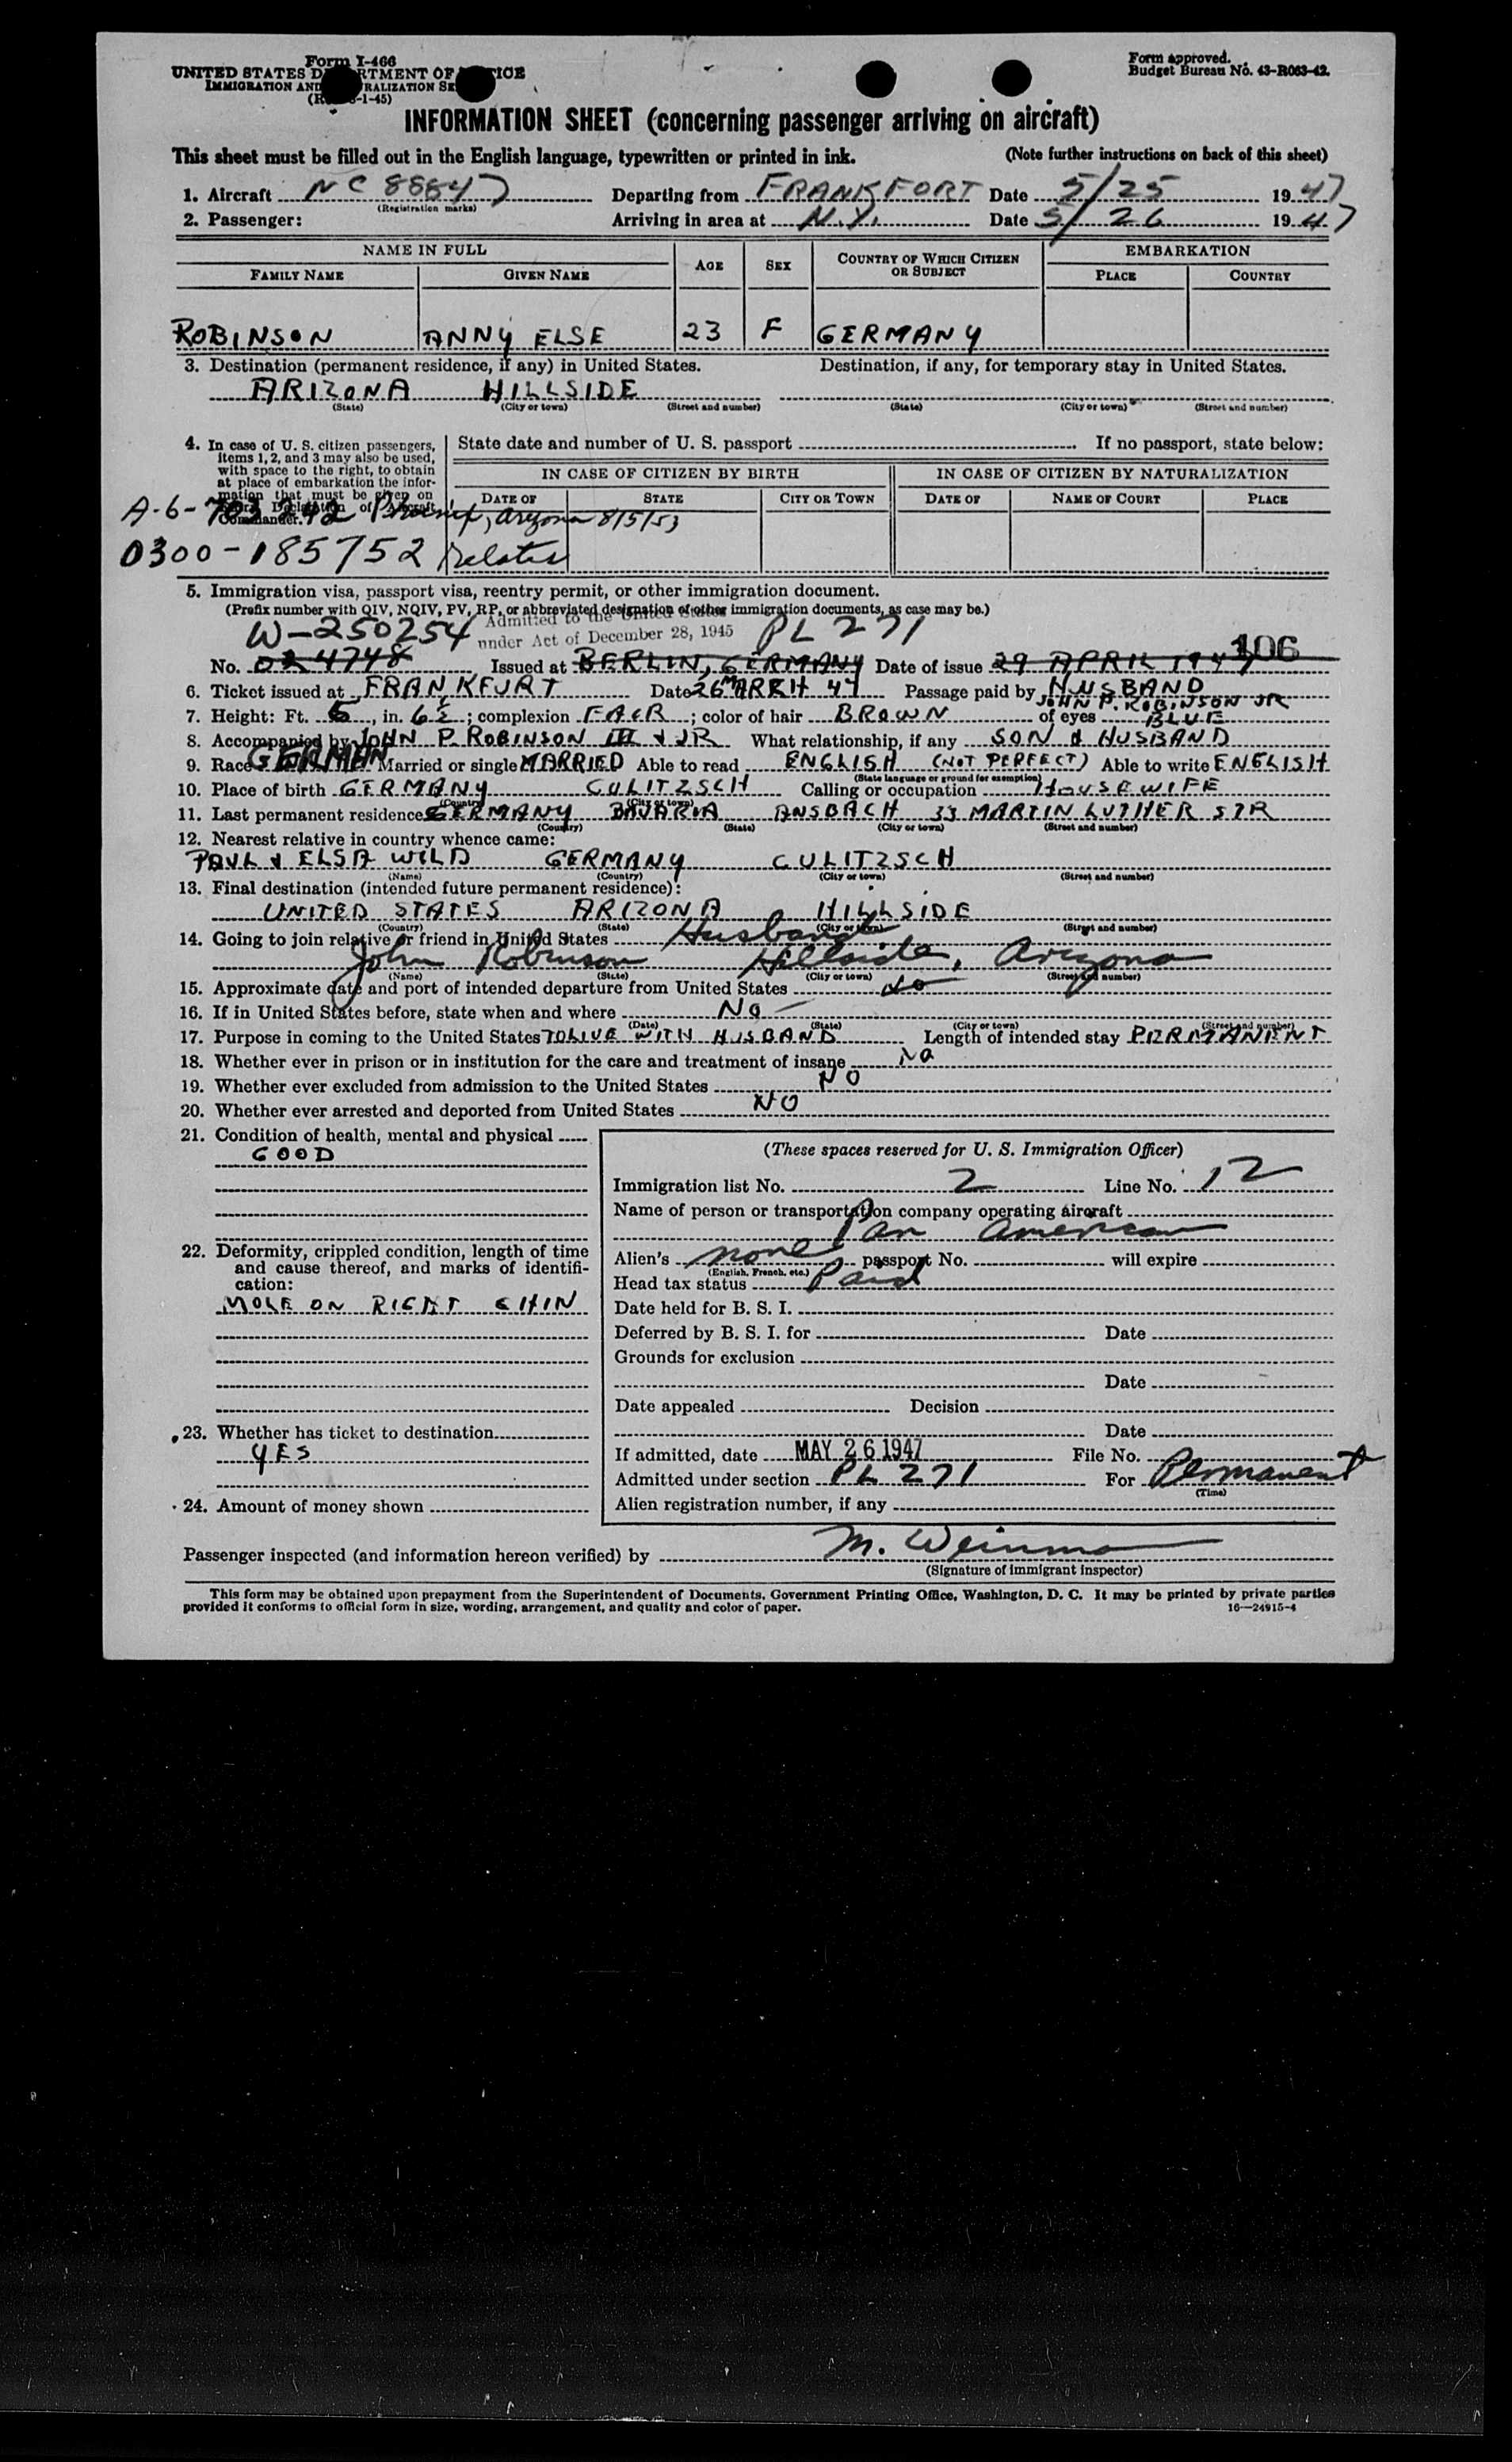 Form I-466
UNITED STATES DEPARTMENT OF JUSTICE
IMMIGRATION AND NATURALIZATION SERVICE
-1-45)
Form approved.
Budget Bureau No. 43-R063-42.
INFORMATION SHEET (concerning passenger arriving on aircraft)
This sheet must be filled out in the English language, typewritten or printed in ink. (Note further instructions on back of this sheet)
1. Aircraft NC 88847 Departing from FRANKFORT Date 5/25 1947
(Registration marks)
2. Passenger: Arriving in area at N.Y. Date 5/26 1947
NAME IN FULL AGE SEX COUNTRY OF WHICH CITIZEN OR SUBJECT EMBARKATION
FAMILY NAME GIVEN NAME PLACE COUNTRY
ROBINSON ANNY ELSE 23 F GERMANY
3. Destination (permanent residence, if any) in United States. Destination, if any, for temporary stay in United States.
ARIZONA HILLSIDE
(State) (City or town) (Street and number) (State) (City or town) (Street and number)
4. In case of U. S. citizen passengers, items 1, 2, and 3 may also be used, with space to the right, to obtain at place of embarkation the information that must be given on Declaration of Aircraft Commander.
State date and number of U. S. passport If no passport, state below:
IN CASE OF CITIZEN BY BIRTH IN CASE OF CITIZEN BY NATURALIZATION
DATE OF STATE CITY OR TOWN DATE OF NAME OF COURT PLACE
A-6-703 242 Phoenix, Arizona 8/5/53
0300-185752 relates
5. Immigration visa, passport visa, reentry permit, or other immigration document.
(Prefix number with QIV, NQIV, PV, RP, or abbreviated designation of other immigration documents, as case may be.)
W-250254 Admitted to the United States PL 271
under Act of December 28, 1945
106
No. 024748 Issued at BERLIN, GERMANY Date of issue 29 APRIL 1947
6. Ticket issued at FRANKFURT Date 26 MARCH 47 Passage paid by HUSBAND
JOHN P. ROBINSON JR
7. Height: Ft. 5, in. 6½; complexion FAIR; color of hair BROWN of eyes BLUE
8. Accompanied by JOHN P. ROBINSON III & JR What relationship, if any SON & HUSBAND
9. Race GERMAN Married or single MARRIED Able to read ENGLISH (NOT PERFECT) Able to write ENGLISH
(State language or ground for exemption)
10. Place of birth GERMANY CULITZSCH Calling or occupation HOUSEWIFE
(Country) (City or town)
11. Last permanent residence GERMANY BAVARIA ANSBACH 33 MARTIN LUTHER STR
(Country) (State) (City or town) (Street and number)
12. Nearest relative in country whence came:
PAUL & ELSA WILD GERMANY CULITZSCH
(Name) (Country) (City or town) (Street and number)
13. Final destination (intended future permanent residence):
UNITED STATES ARIZONA HILLSIDE
(Country) (State) (City or town) (Street and number)
14. Going to join relative or friend in United States Husband
John Robinson Hillside, Arizona
(Name) (State) (City or town) (Street and number)
15. Approximate date and port of intended departure from United States no
16. If in United States before, state when and where NO
(Date) (State) (City or town) (Street and number)
17. Purpose in coming to the United States TO LIVE WITH HUSBAND Length of intended stay PERMANENT
18. Whether ever in prison or in institution for the care and treatment of insane NO
19. Whether ever excluded from admission to the United States NO
20. Whether ever arrested and deported from United States NO
21. Condition of health, mental and physical
GOOD
22. Deformity, crippled condition, length of time and cause thereof, and marks of identification:
MOLE ON RIGHT CHIN
23. Whether has ticket to destination
YES
24. Amount of money shown
(These spaces reserved for U. S. Immigration Officer)
Immigration list No. 2 Line No. 12
Name of person or transportation company operating aircraft
Pan American
Alien's none passport No. will expire
(English, French, etc.)
Head tax status Paid
Date held for B. S. I.
Deferred by B. S. I. for Date
Grounds for exclusion
Date
Date appealed Decision
Date
If admitted, date MAY 26 1947 File No.
Admitted under section PL 271 For Permanent
(Time)
Alien registration number, if any
Passenger inspected (and information hereon verified) by M. Weinman
(Signature of immigrant inspector)
This form may be obtained upon prepayment from the Superintendent of Documents, Government Printing Office, Washington, D. C. It may be printed by private parties
provided it conforms to official form in size, wording, arrangement, and quality and color of paper. 16—24915-4